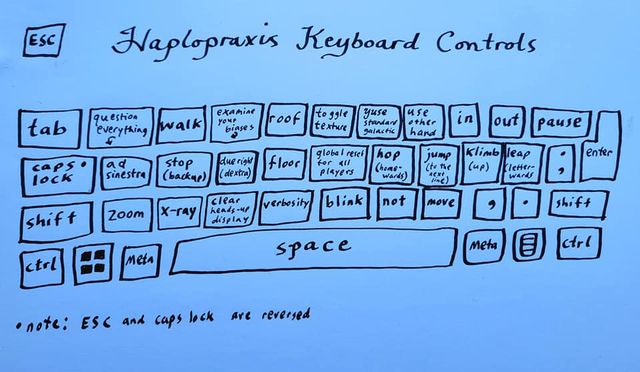 ESC
Haplopraxis Keyboard Controls
tab
question
everything
walk
examine
your
biases
roof
toggle
texture
yuse
standard
galactic
use
other
hand
in
out
pause
caps •
lock
ad
sinestra
stop
(backup)
due right
(dextra)
floor
global reset
for all
players
hop
(home-
wards)
jump
(to the
next
line)
klimb
(up)
leap
(letter-
wards)
:
;
enter
shift
zoom
x-ray
clear
heads-up
display
verbosity
blink
not
move
,
.
shift
ctrl
Meta
space
Meta
ctrl
• note: ESC and caps lock are reversed